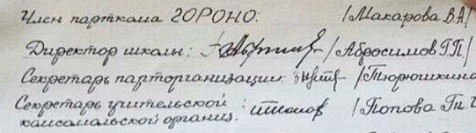 Член парткома ГОРОНО: /Макарова В.А/
Директор школы: /Абросимов Г.П/
Секретарь парторганизации: /Тюрюшкина
Секретарь учительской : /Попова
комсомольской организ.